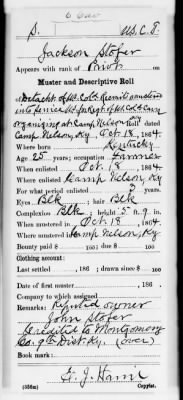 S. U.S.C.T.
Jackson Stofer
Appears with rank of Privt on
Muster and Descriptive Roll
of a Detach't of U.S. Col'd Recruits mustered
into service
organizing at Camp Nelson Roll dated
Camp Nelson, Ky Oct 18, 1864.
Where born Kentucky
Age 25 years; occupation Farmer
When enlisted Oct 18, 1864.
Where enlisted Camp Nelson, Ky
For what period enlisted 3 years.
Eyes Blk; hair Blk
Complexion Blk; height 5 ft. 9 in.
When mustered in Oct 18, 1864.
Where mustered in Camp Nelson, Ky
Bounty paid $ 100; due $ 100
Clothing account:
Last settled , 186 ; drawn since $ 100
Date of first muster , 186 .
Company to which assigned
Remarks: Reputed owner
John Stofer
Credited to Montgomery
Co. 9th Dist. Ky. (over)
Book mark:
(356m) Copyist.